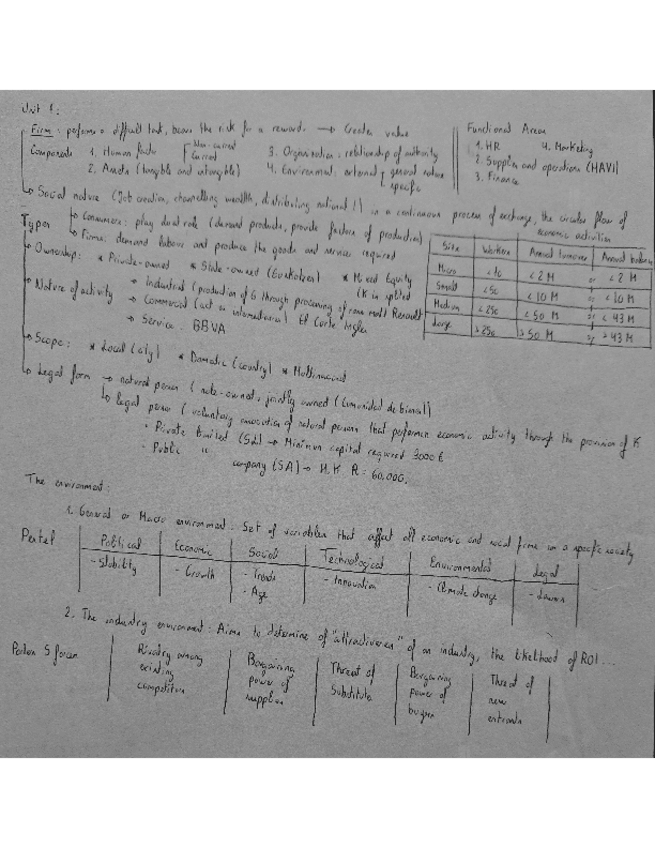 Unit 1:
Firm: performs a difficult task, bears the risk for a reward. → Creates value
Components 1. Human factor
2. Assets (tangible and intangible) [Non-current
Current
3. Organisation: relationship of authority
4. Environment: external general nature
specific
Functional Areas
1. HR 4. Marketing
2. Supplies and operations (HAVI)
3. Finance
↳ Social nature (Job creation, channelling wealth, distributing national I) in a continuous process of exchange, the circular flow of
economic activities
Types ↳ Consumers: play dual role (demand products, provide factors of production)
↳ Firms: demand labour and produce the goods and services required
↳ Ownership: * Private-owned * State-owned (Euskotren) * Mixed Equity
(K is splited
↳ Nature of activity → Industrial (production of G through processing of raw mat) Renault
→ Commercial (act as intermediaries) El Corte Ingles
→ Service: BBVA
Size | Workers | Annual turnover | Annual
Micro | <10 | < 2 M or | < 2 M
Small | <50 | < 10 M or | < 10 M
Medium | <250 | < 50 M or | < 43 M
Large | >250 | > 50 M or | > 43 M
↳ Scope: * Local (city) * Domestic (country) * Multinacional
↳ Legal form → natural person ( owned, jointly owned (Comunidad de bienes)
↳ legal person (voluntary association of natural persons that performes economic activity through the provision of K
· Private limited (SL) → Minimum capital required 3000 €
· Public " company (SA) → M. K. R = 60.000.
The environment:
1. General or Macro environment: Set of variables that affect all economic and social firms in a specific society
Pestel | Political | Economic | Social | Technological | Environmental | Legal
- Stability | - Growth | - Trends | - Innovation | - Climate change | - Laws
- Age
2. The industry environment: Aims to determine of "attractiveness" of an industry, the likelihood of ROI...
Porter 5 forces | Rivalry among existing competitors | Bargaining power of suppliers | Threat of Substitute | Bargaining power of buyers | Threat of new entrants